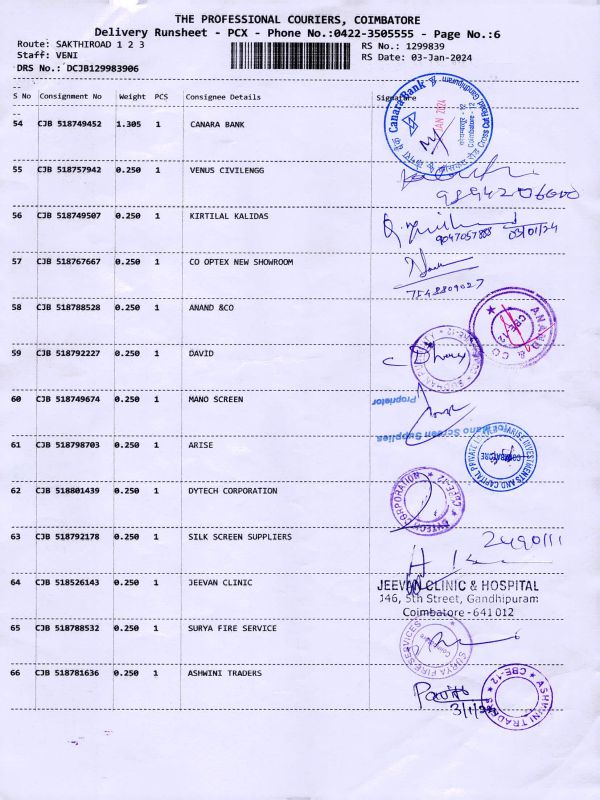 THE PROFESSIONAL COURIERS, COIMBATORE
Delivery Runsheet - PCX - Phone No.:0422-3505555 - Page No.:6
Route: SAKTHIROAD 1 2 3 RS No.: 1299839
Staff: VENI RS Date: 03-Jan-2024
DRS No.: DCJB129983906
S No Consignment No Weight PCS Consignee Details Signature
54 CJB 518749452 1.305 1 CANARA BANK
Canara Bank
JAN 2024
55 CJB 518757942 0.250 1 VENUS CIVILENGG
56 CJB 518749507 0.250 1 KIRTILAL KALIDAS
9047057888 03/01/24
57 CJB 518767667 0.250 1 CO OPTEX NEW SHOWROOM
7548809027
58 CJB 518788528 0.250 1 ANAND &CO
ANAND & CO
59 CJB 518792227 0.250 1 DAVID
60 CJB 518749674 0.250 1 MANO SCREEN
Proprietor
Mano Screen Supplies
61 CJB 518798703 0.250 1 ARISE
ARISE INVESTMENTS AND CAPITAL PRIVATE LIMITED
COIMBATORE
62 CJB 518801439 0.250 1 DYTECH CORPORATION
DYTECH CORPORATION
CBE-12
63 CJB 518792178 0.250 1 SILK SCREEN SUPPLIERS
2490111
64 CJB 518526143 0.250 1 JEEVAN CLINIC
JEEVAN CLINIC & HOSPITAL
146, 5th Street, Gandhipuram
Coimbatore - 641 012
65 CJB 518788532 0.250 1 SURYA FIRE SERVICE
SURYA FIRE SERVICES
Coimbatore
66 CJB 518781636 0.250 1 ASHWINI TRADERS
ASHWINI TRADERS
CBE-12
3/1/24